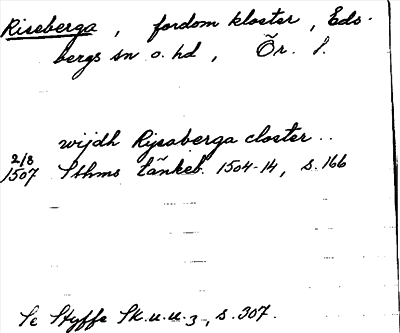 Riseberga, fordom kloster, Eds-
bergs sn o. hd, Ör. l.
wijdh Rijsaberga closter..
2/8
1507 Sthms tänkeb. 1504-14, s. 166
Se Styffe Sk.u.u.3, s. 307.